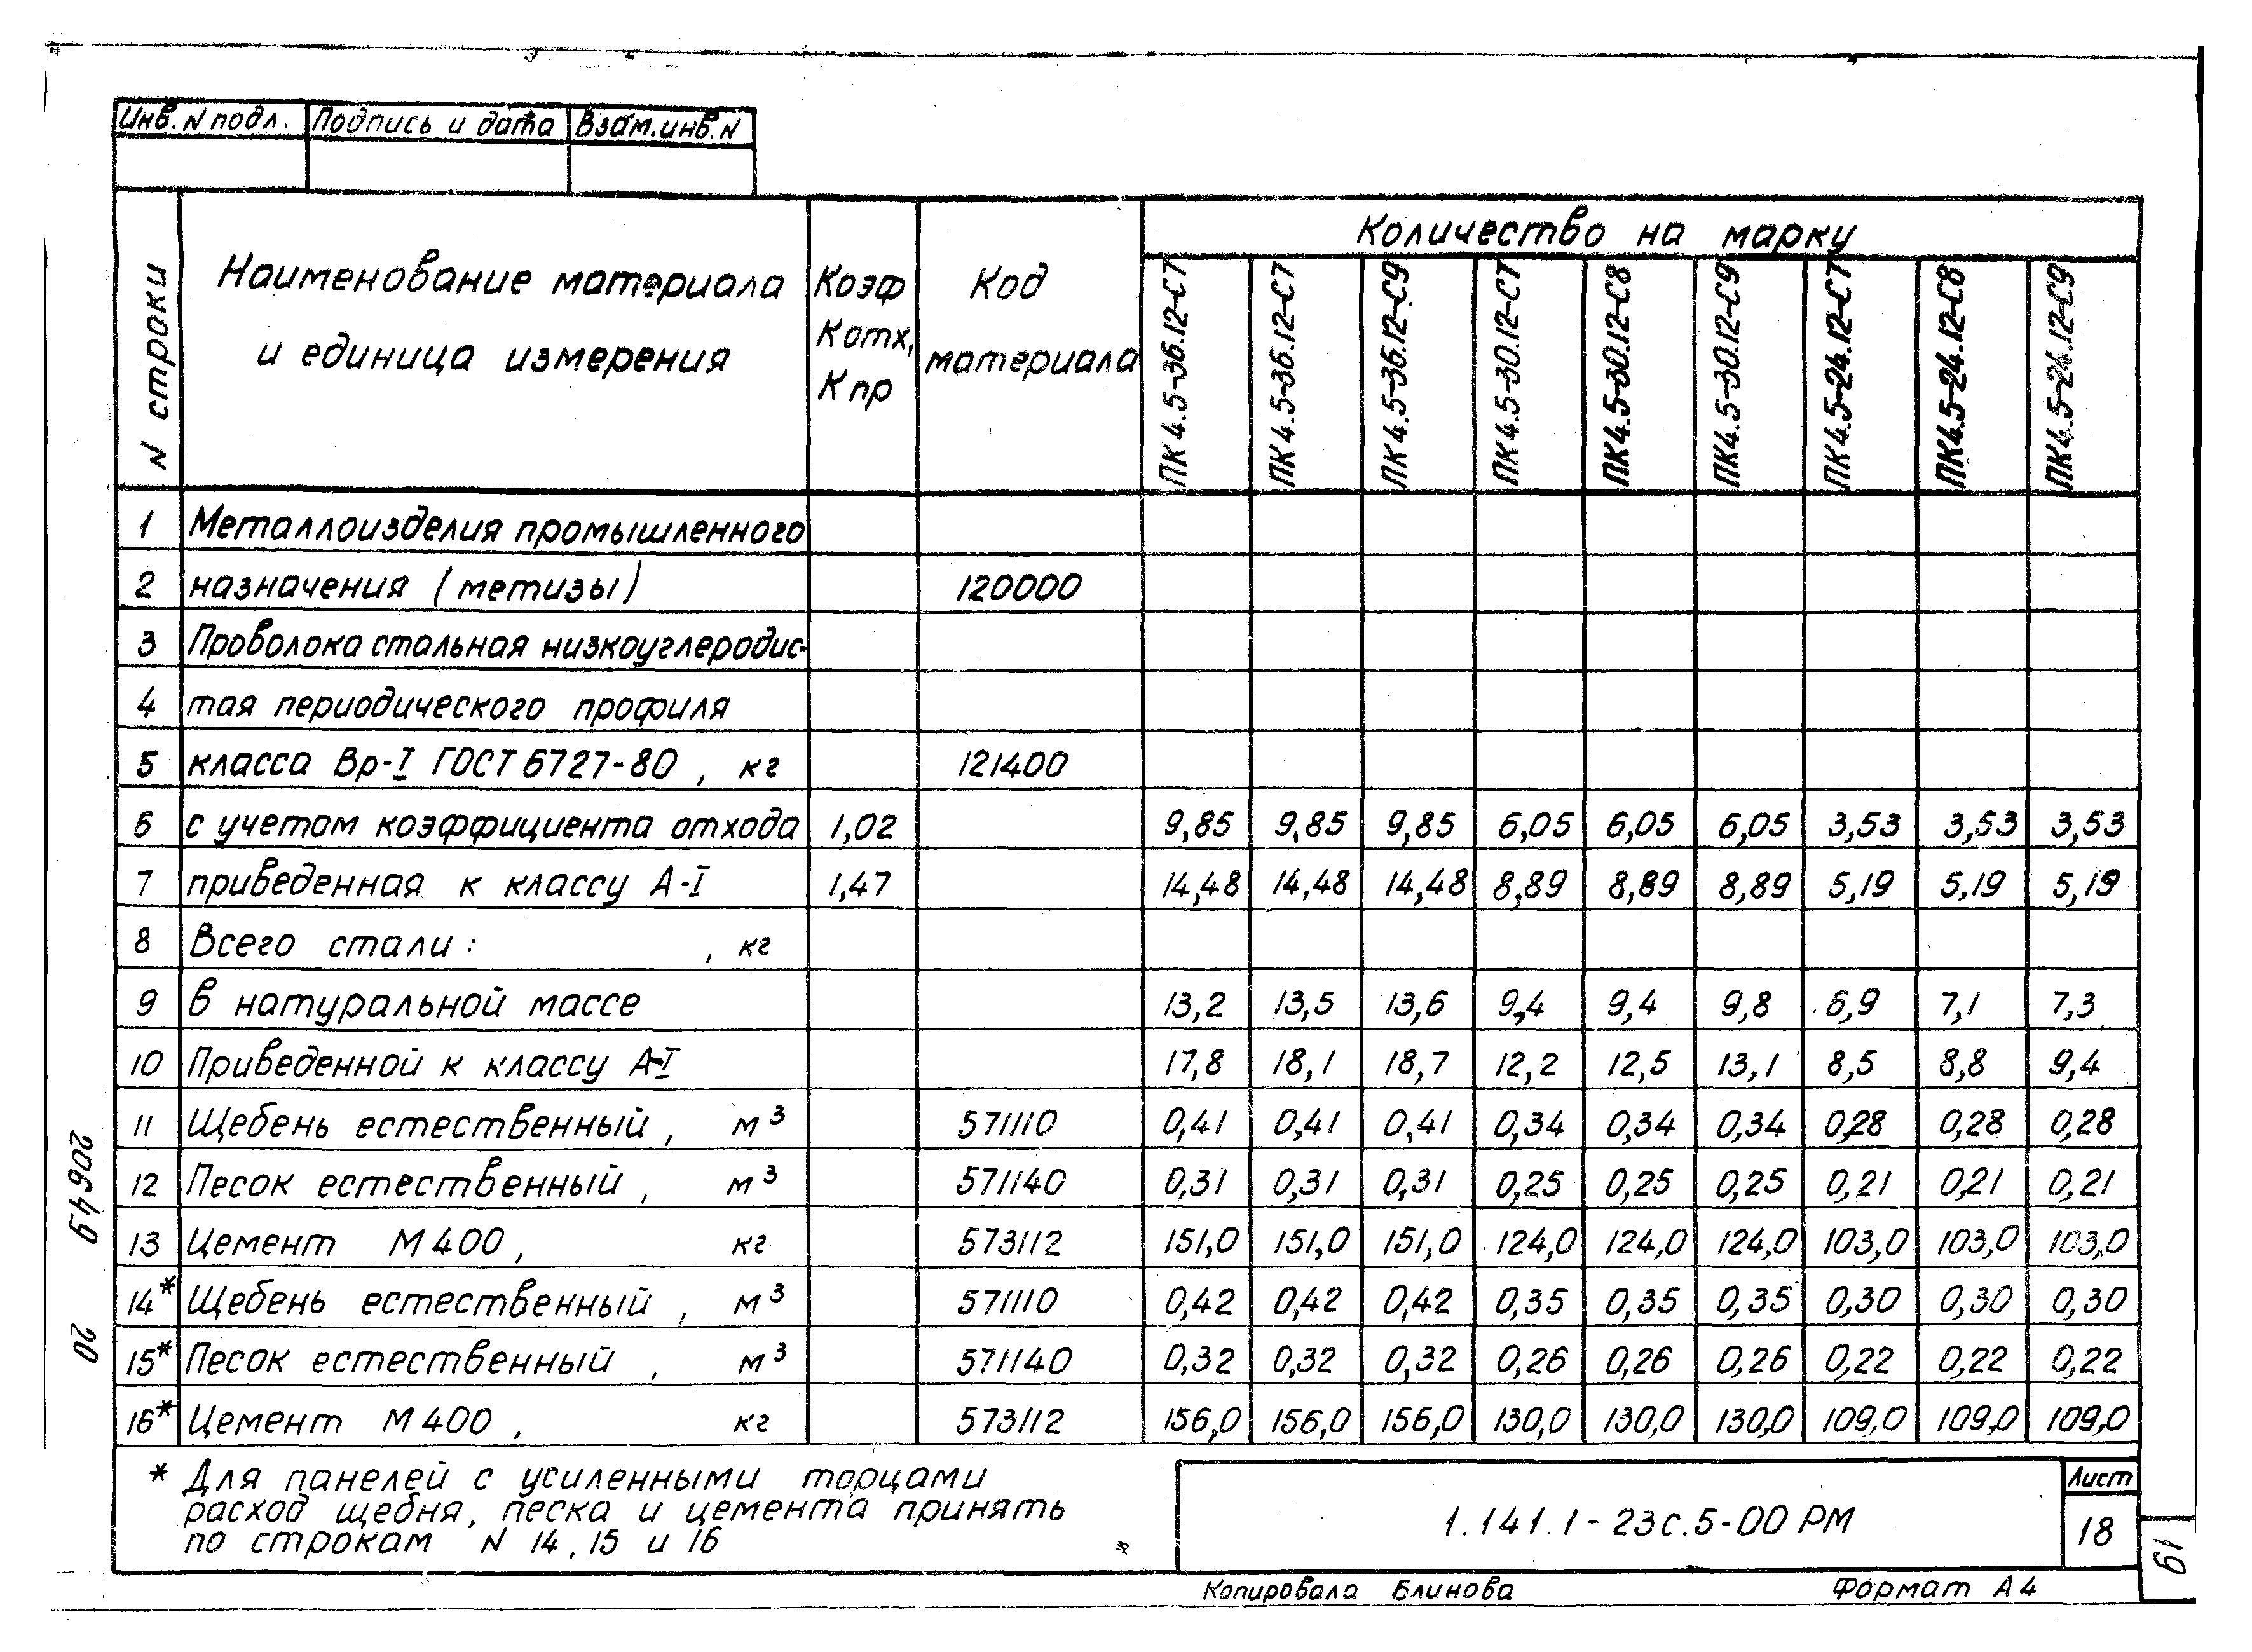 Инв. N подл. Подпись и дата Взам. инв. N
N строки
Наименование материала
и единица измерения
Коэф
Котх,
Кпр
Код
материала
Количество на марку
ПК4.5-36.12-С7 ПК4.5-36.12-С7 ПК4.5-36.12-С9 ПК4.5-30.12-С7 ПК4.5-30.12-С8 ПК4.5-30.12-С9 ПК4.5-24.12-С7 ПК4.5-24.12-С8 ПК4.5-24.12-С9
1 Металлоизделия промышленного
2 назначения (метизы) 120000
3 Проволока стальная низкоуглеродис-
4 тая периодического профиля
5 класса Вр-I ГОСТ 6727-80, кг 121400
6 с учетом коэффициента отхода 1,02 9,85 9,85 9,85 6,05 6,05 6,05 3,53 3,53 3,53
7 приведенная к классу А-I 1,47 14,48 14,48 14,48 8,89 8,89 8,89 5,19 5,19 5,19
8 Всего стали: , кг
9 в натуральной массе 13,2 13,5 13,6 9,4 9,4 9,8 6,9 7,1 7,3
10 Приведенной к классу А-I 17,8 18,1 18,7 12,2 12,5 13,1 8,5 8,8 9,4
11 Щебень естественный, м³ 571110 0,41 0,41 0,41 0,34 0,34 0,34 0,28 0,28 0,28
12 Песок естественный, м³ 571140 0,31 0,31 0,31 0,25 0,25 0,25 0,21 0,21 0,21
13 Цемент М400, кг 573112 151,0 151,0 151,0 124,0 124,0 124,0 103,0 103,0 103,0
14* Щебень естественный, м³ 571110 0,42 0,42 0,42 0,35 0,35 0,35 0,30 0,30 0,30
15* Песок естественный, м³ 571140 0,32 0,32 0,32 0,26 0,26 0,26 0,22 0,22 0,22
16* Цемент М400, кг 573112 156,0 156,0 156,0 130,0 130,0 130,0 109,0 109,0 109,0
* Для панелей с усиленными торцами
расход щебня, песка и цемента принять
по строкам N 14, 15 и 16
1.141.1-23с.5-00 РМ
Лист
18
19
Копировала Блинова Формат А4
20649 20